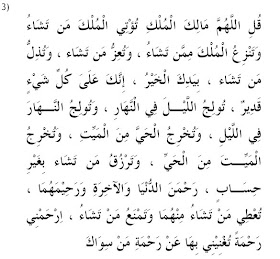 3)
قُلِ اللَّهُمَّ مَالِكَ الْمُلْكِ تُؤْتِي الْمُلْكَ مَن تَشَاءُ
وَتَنْزِعُ الْمُلْكَ مِمَّن تَشَاءُ ، وَتُعِزُّ مَن تَشَاءُ ، وَتُذِلُّ
مَن تَشَاءُ ، بِيَدِكَ الْخَيْرُ ، إِنَّكَ عَلَى كُلِّ شَيْءٍ
قَدِيرٌ ، تُولِجُ اللَّيْـلَ فِي النَّهَارِ ، وَتُولِجُ النَّـهَارَ
فِي اللَّيْلِ ، وَتُخْرِجُ الْحَيَّ مِنَ الْمَيِّتِ ، وَتُخْرِجُ
الْمَيِّـتَ مِنَ الْحَيِّ ، وَتَرْزُقُ مَن تَشَاءُ بِغَيْرِ
حِسَـابٍ ، رَحْمٰنَ الدُّنْيَا وَالآخِرَةِ وَرَحِيمَهُمَا ،
تُعْطِي مَنْ تَشَاءُ مِنْهُمَا وَتَمْنَعُ مَنْ تَشَاءُ ، اِرْحَمْنِي
رَحْمَةً تُغْنِينِي بِهَا عَنْ رَحْمَةِ مَنْ سِوَاكَ